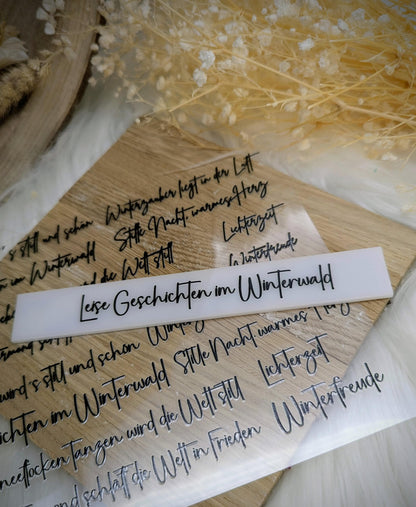 s still und schön Winterzauber liegt in der Luft
en im Winterwald Stille Nacht, warmes Herz
wird die Welt still Lichterzeit
Winterfreude
Leise Geschichten im Winterwald
wird's still und schön
chten im Winterwald Stille Nacht, warmes Herz
neeflocken tanzen wird die Welt still Lichterzeit
und schläft die Welt in Frieden Winterfreude